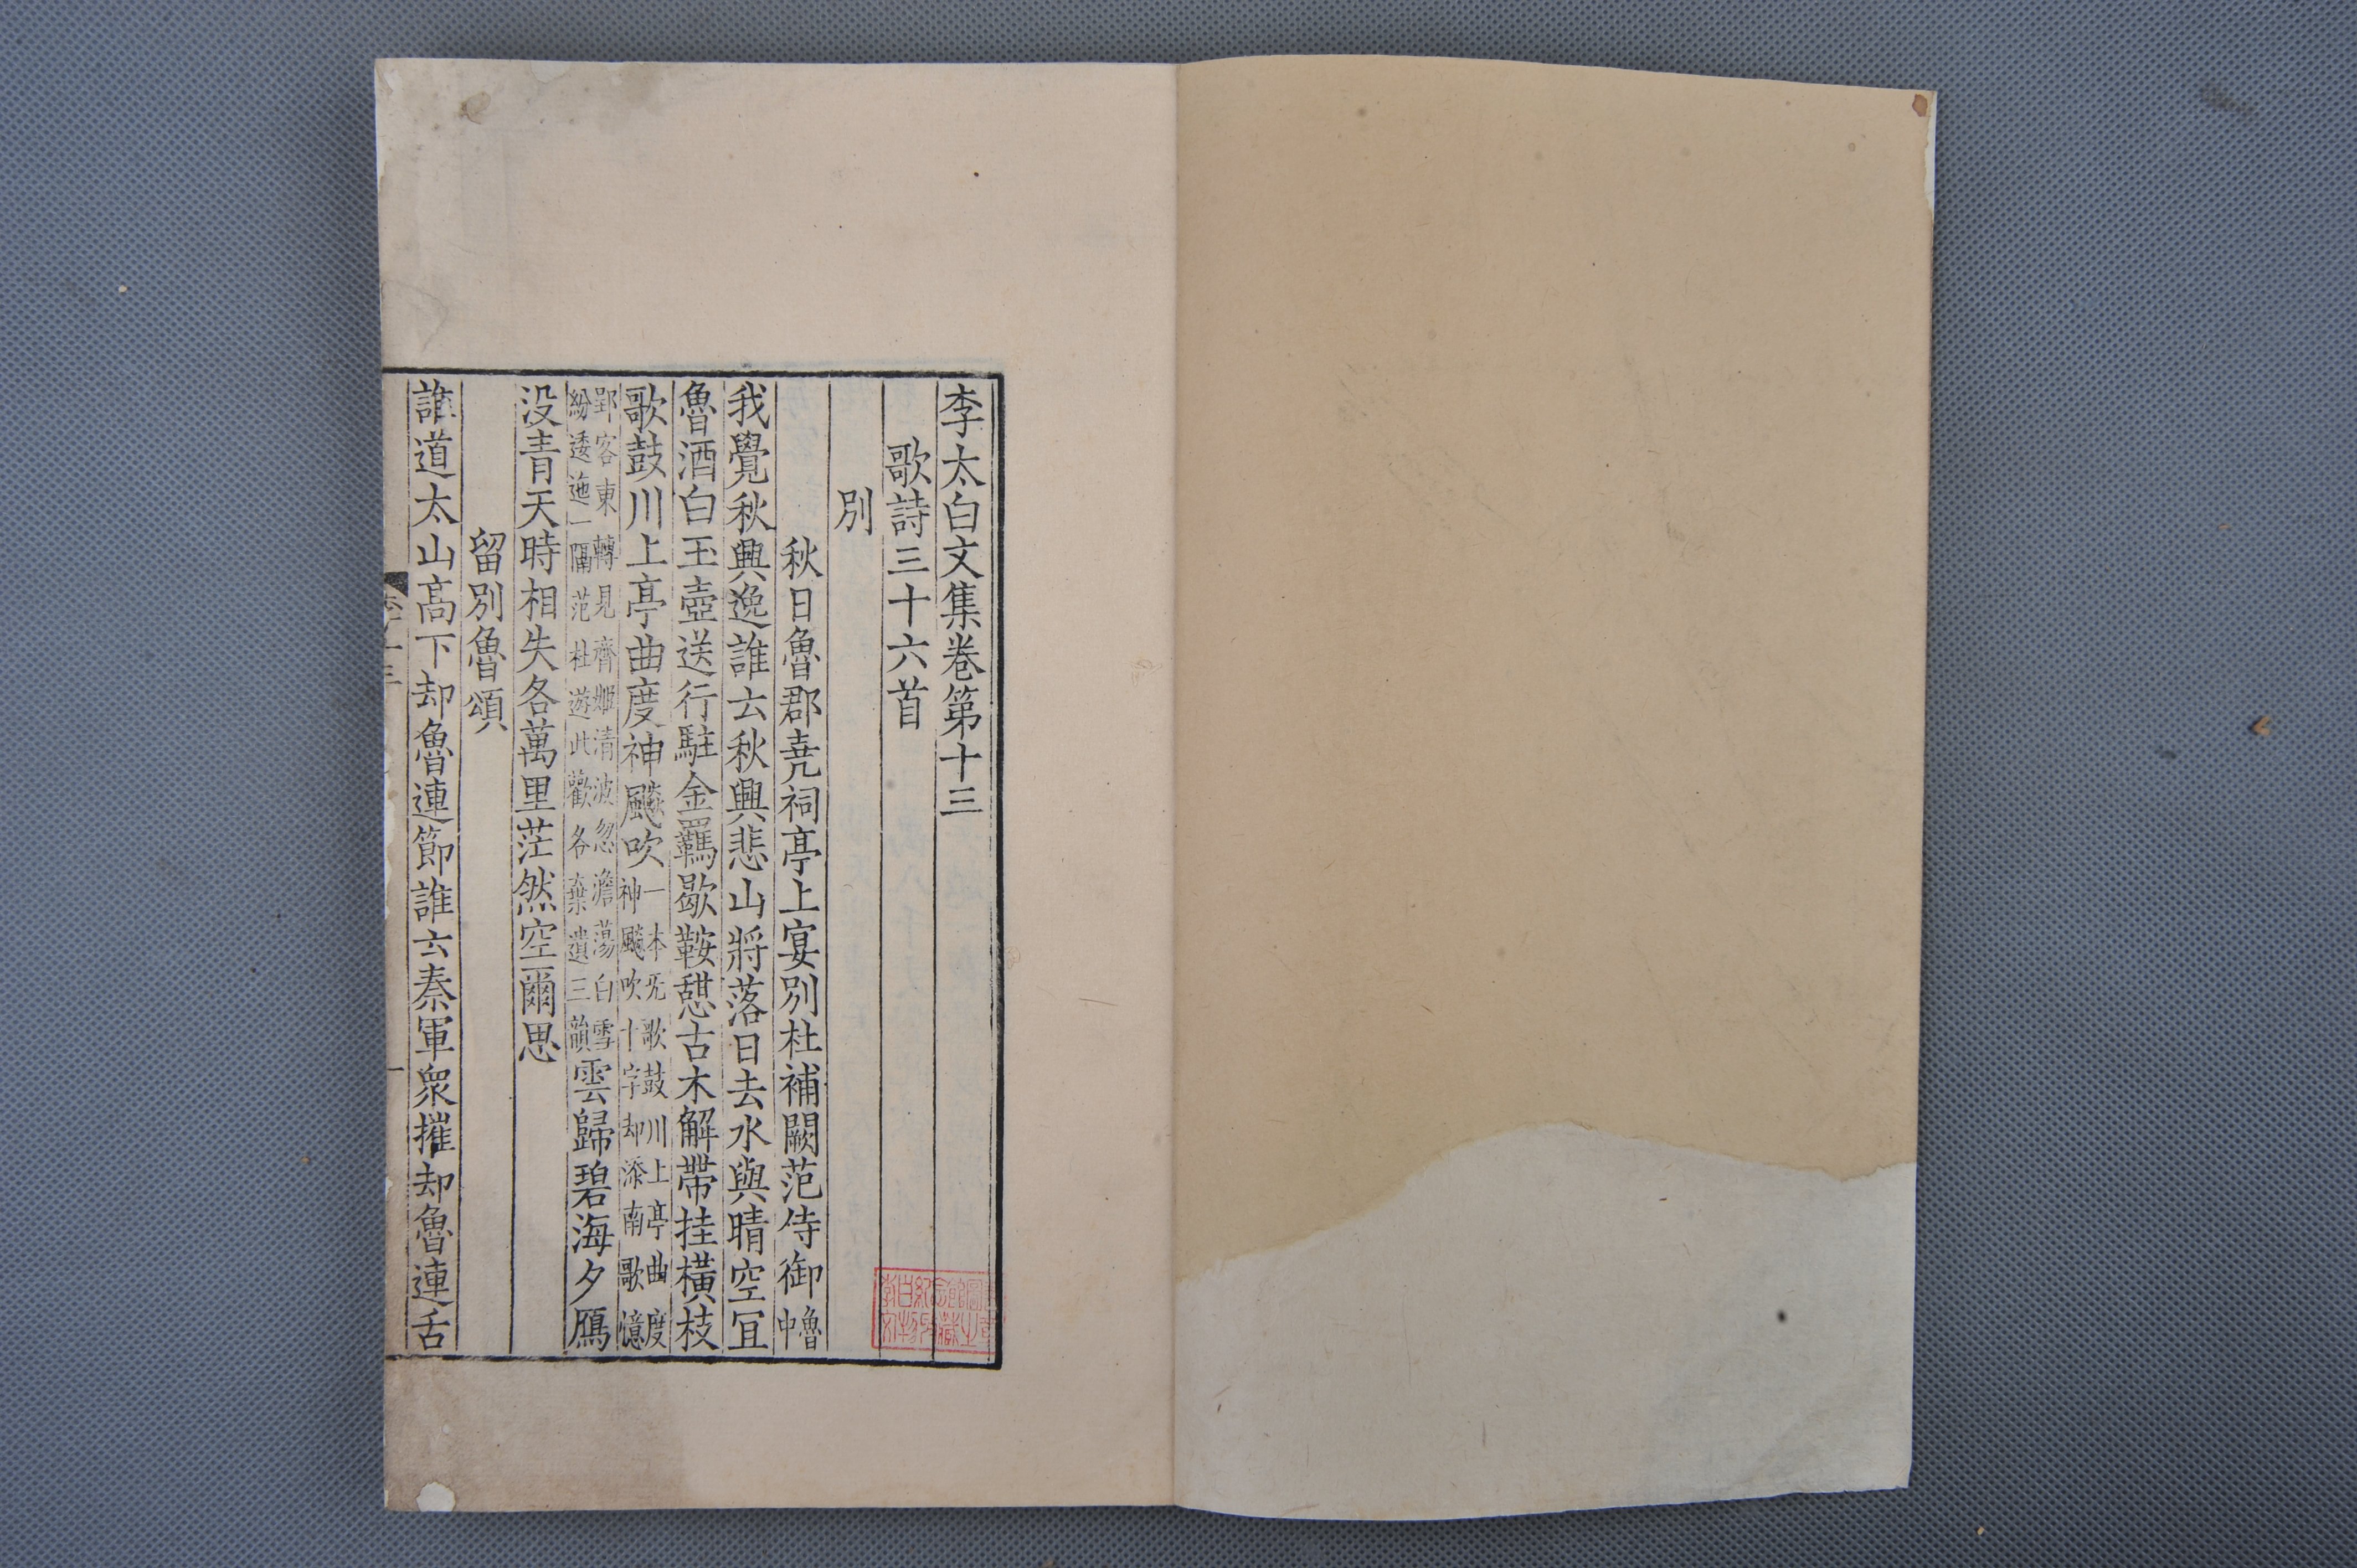 李太白文集卷第十三
歌詩三十六首
別
秋日魯郡堯祠亭上宴別杜補闕范侍御魯中
我覺秋興逸誰云秋興悲山將落日去水與晴空宜
魯酒白玉壺送行駐金羈歇鞍憩古木解帶挂橫枝
歌鼓川上亭曲度神飈吹一本无歌鼓川上亭曲度神飈吹十字却添南歌憶
郢客東轉見齊姬清波忽澹蕩白雪紛逶迤一隔范杜遊此歡各棄遺三韻雲歸碧海夕鴈
没青天時相失各萬里茫然空爾思
留別魯頌
誰道太山高下却魯連節誰云秦軍衆摧却魯連舌